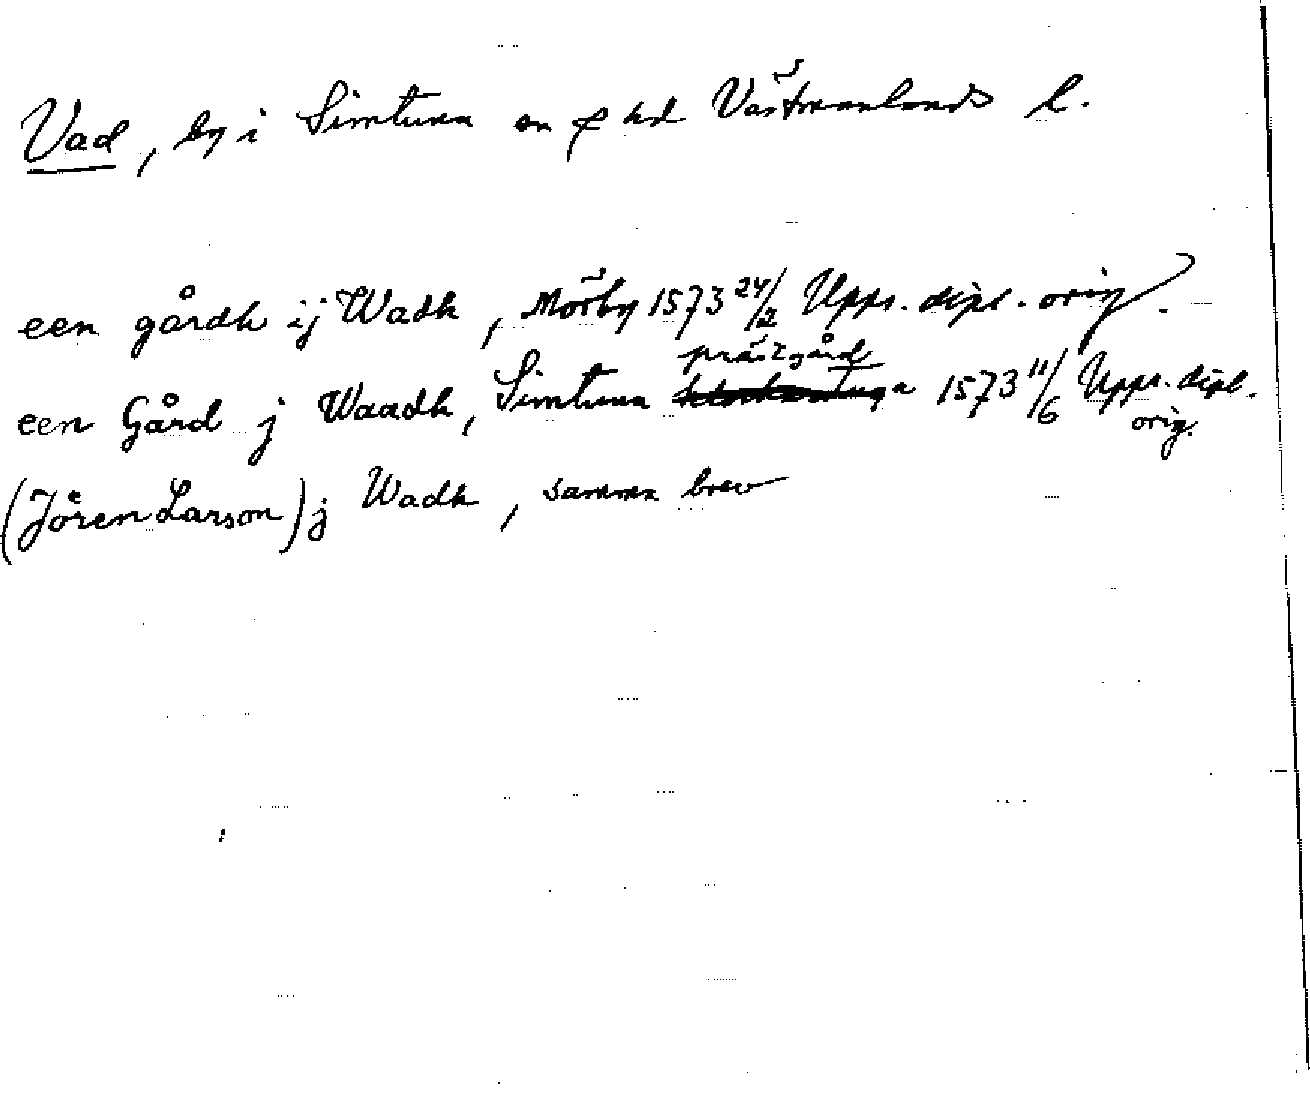 Vad, by i Simtuna sn o hd Västmanlands l.
een gårdh ij Wadh, Mörby 1573 24/2 Upps. dipl. orig.
prästgård
een Gård j Waadh, Simtuna 1573 11/6 Upps. dipl.
orig.
(Jören Larson) j Wadh, samma brev